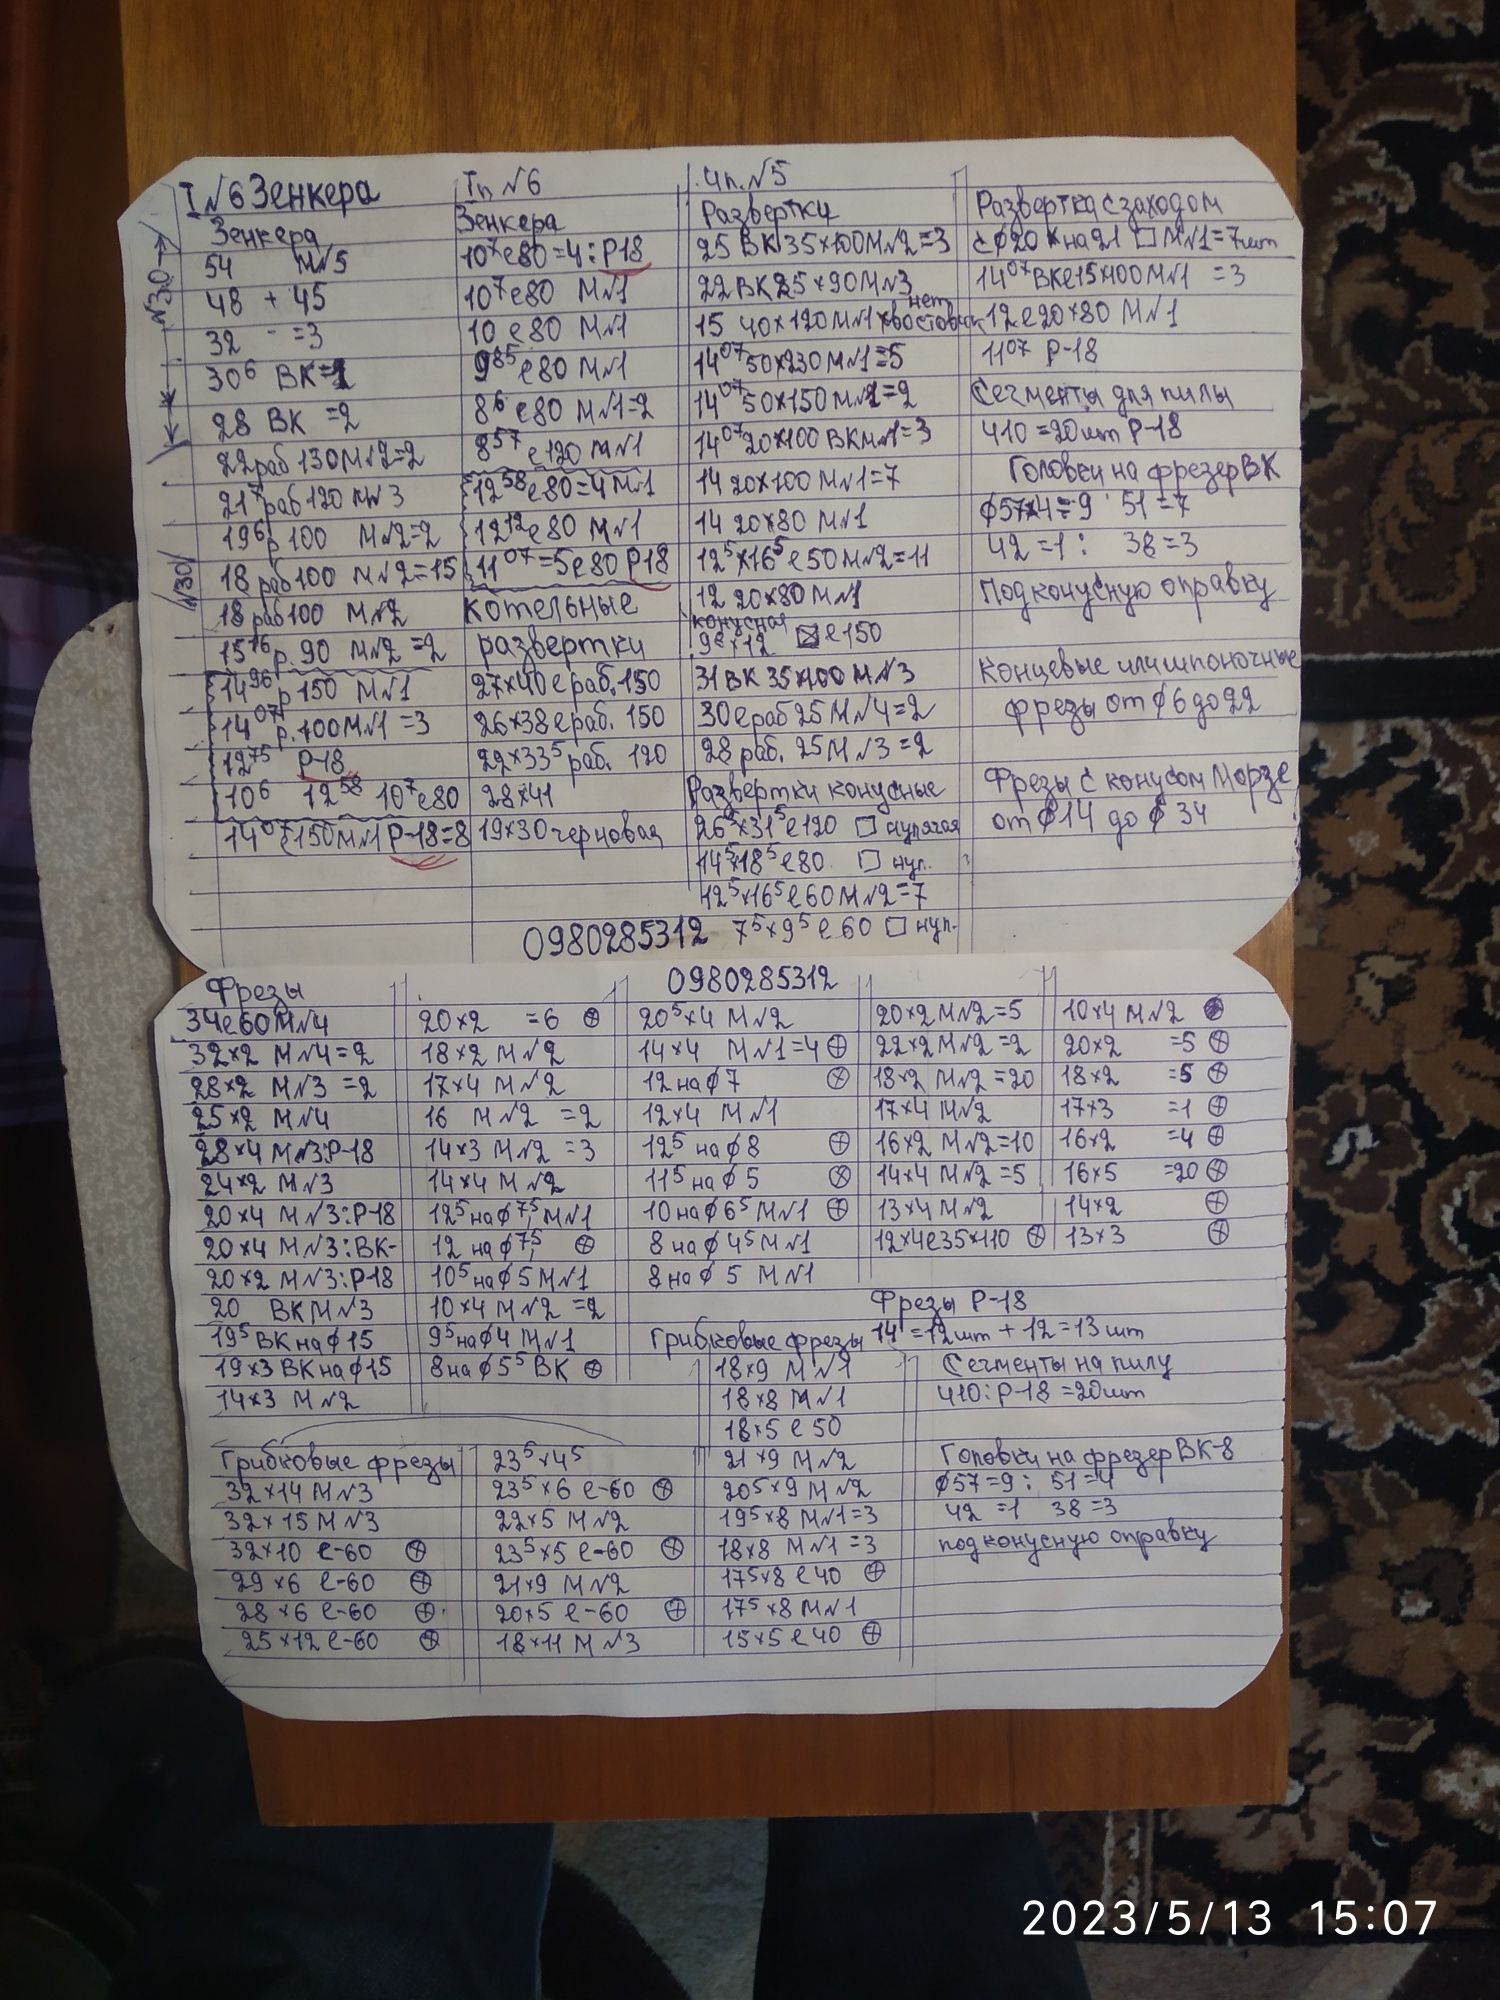 I №6 Зенкера
Зенкера
54 М№5
48 + 45
32 - =3
30⁶ ВК=2
28 ВК =2
22 раб 130 М№2=2
21⁷ раб 120 М№3
19⁶ р 100 М№2=2
18 раб 100 М№2=15
18 раб 100 М№2
15¹⁶ р. 90 М№2 =2
14⁹⁶ р 150 М№1
14⁰⁷ р. 100 М№1 =3
12⁷⁵ Р-18
10⁶ 12⁵⁸ 10⁷ е80
14⁰⁷ е150 М№1 Р-18=8
№30
№30
Iп №6
Зенкера
10⁷ е80=4: Р18
10⁷ е80 М№1
10 е80 М№1
9⁸⁵ е80 М№1
8⁶ е80 М№1=2
8⁵⁷ е120 М№1
12⁵⁸ е80=4 М№1
12¹² е80 М№1
11⁰⁷=5 е80 Р18
котельные
развертки
27×40 е раб. 150
26×38 е раб. 150
22×33⁵ раб. 120
28×41
19×30 черновая
Развертки
25 ВК 35×100 М№2=3
22 ВК 25×90 М№3
15 40×120 М№1 нет хвостовик
14⁰⁷ 50×230 М№1=5
14⁰⁷ 50×150 М№2=2
14⁰⁷ 20×100 ВК М№1=3
14 20×100 М№1=7
14 20×80 М№1
12⁵×16⁵ е50 М№2=11
12 20×80 М№1
конусная
9е×12 е150
31 ВК 35×100 М№3
30 е раб 25 М№4=2
28 раб. 25 М№3=2
Развертки конусные
26⁵×31⁵ е120 □
14⁵×18⁵ е80 □
12⁵×16⁵ е60 М№2=7
7⁵×9⁵ е60 □
0980285312
Развертка с заходом
с ф20 × на 21 □ М№1=7шт
14⁰⁷ ВК е15×100 М№1 =3
12 е20×80 М№1
11⁰⁷ Р-18
Сегменты для пилы
410=20шт Р-18
Головки на фрезер ВК
ф57×4=9 51=7
42=1: 38=3
Под конусную оправку
концевые или шпоночные
фрезы от ф6 до 22
Фрезы с конусом Морзе
от ф14 до ф34
Фрезы
34 е60 М№4
32×2 М№4=2
28×2 М№3=2
25×2 М№4
28×4 М№3:Р-18
24×2 М№3
20×4 М№3:Р-18
20×4 М№3:ВК-
20×2 М№3:Р-18
20 ВК М№3
19⁵ ВК на ф15
19×3 ВК на ф15
14×3 М№2
20×2 =6 ⊕
18×2 М№2
17×4 М№2
16 М№2 =2
14×3 М№2 =3
14×4 М№2
12⁵ на ф7⁵ М№1
12 на ф7⁵ ⊕
10⁵ на ф5 М№1
10×4 М№2 =2
9⁵ на ф4 М№1
8 на ф5⁵ ВК ⊕
0980285312
20⁵×4 М№2
14×4 М№1=4 ⊕
12 на ф7 ⊕
12×4 М№1
12⁵ на ф8 ⊕
11⁵ на ф5 ⊕
10 на ф6⁵ М№1 ⊕
8 на ф4⁵ М№1
8 на ф5 М№1
20×2 М№2=5
22×2 М№2=2
18×2 М№2=20
17×4 М№2
16×2 М№2=10
14×4 М№2=5
13×4 М№2
12×4 е35×110 ⊕
10×4 М№2
20×2 =5 ⊕
18×2 =5 ⊕
17×3 =1 ⊕
16×2 =4 ⊕
16×5 =20 ⊕
14×2 ⊕
13×3 ⊕
Фрезы Р-18
14 =12шт + 12=13шт
Сегменты на пилу
410:Р-18=20шт
Головки на фрезер ВК-8
ф57=9: 51=4
42 =1 38=3
под конусную оправку
Грибковые фрезы
18×9 М№1
18×8 М№1
18×5 е50
21×9 М№2
20⁵×9 М№2
19⁵×8 М№1=3
18×8 М№1=3
17⁵×8 е40 ⊕
17⁵×8 М№1
15×5 е40 ⊕
Грибковые фрезы
32×14 М№3
32×15 М№3
32×10 е-60 ⊕
29×6 е-60 ⊕
28×6 е-60 ⊕
25×12 е-60 ⊕
23⁵×4⁵
23⁵×6 е-60 ⊕
22×5 М№2
23⁵×5 е-60 ⊕
21×9 М№2
20×5 е-60 ⊕
18×11 М№3
2023/5/13 15:07